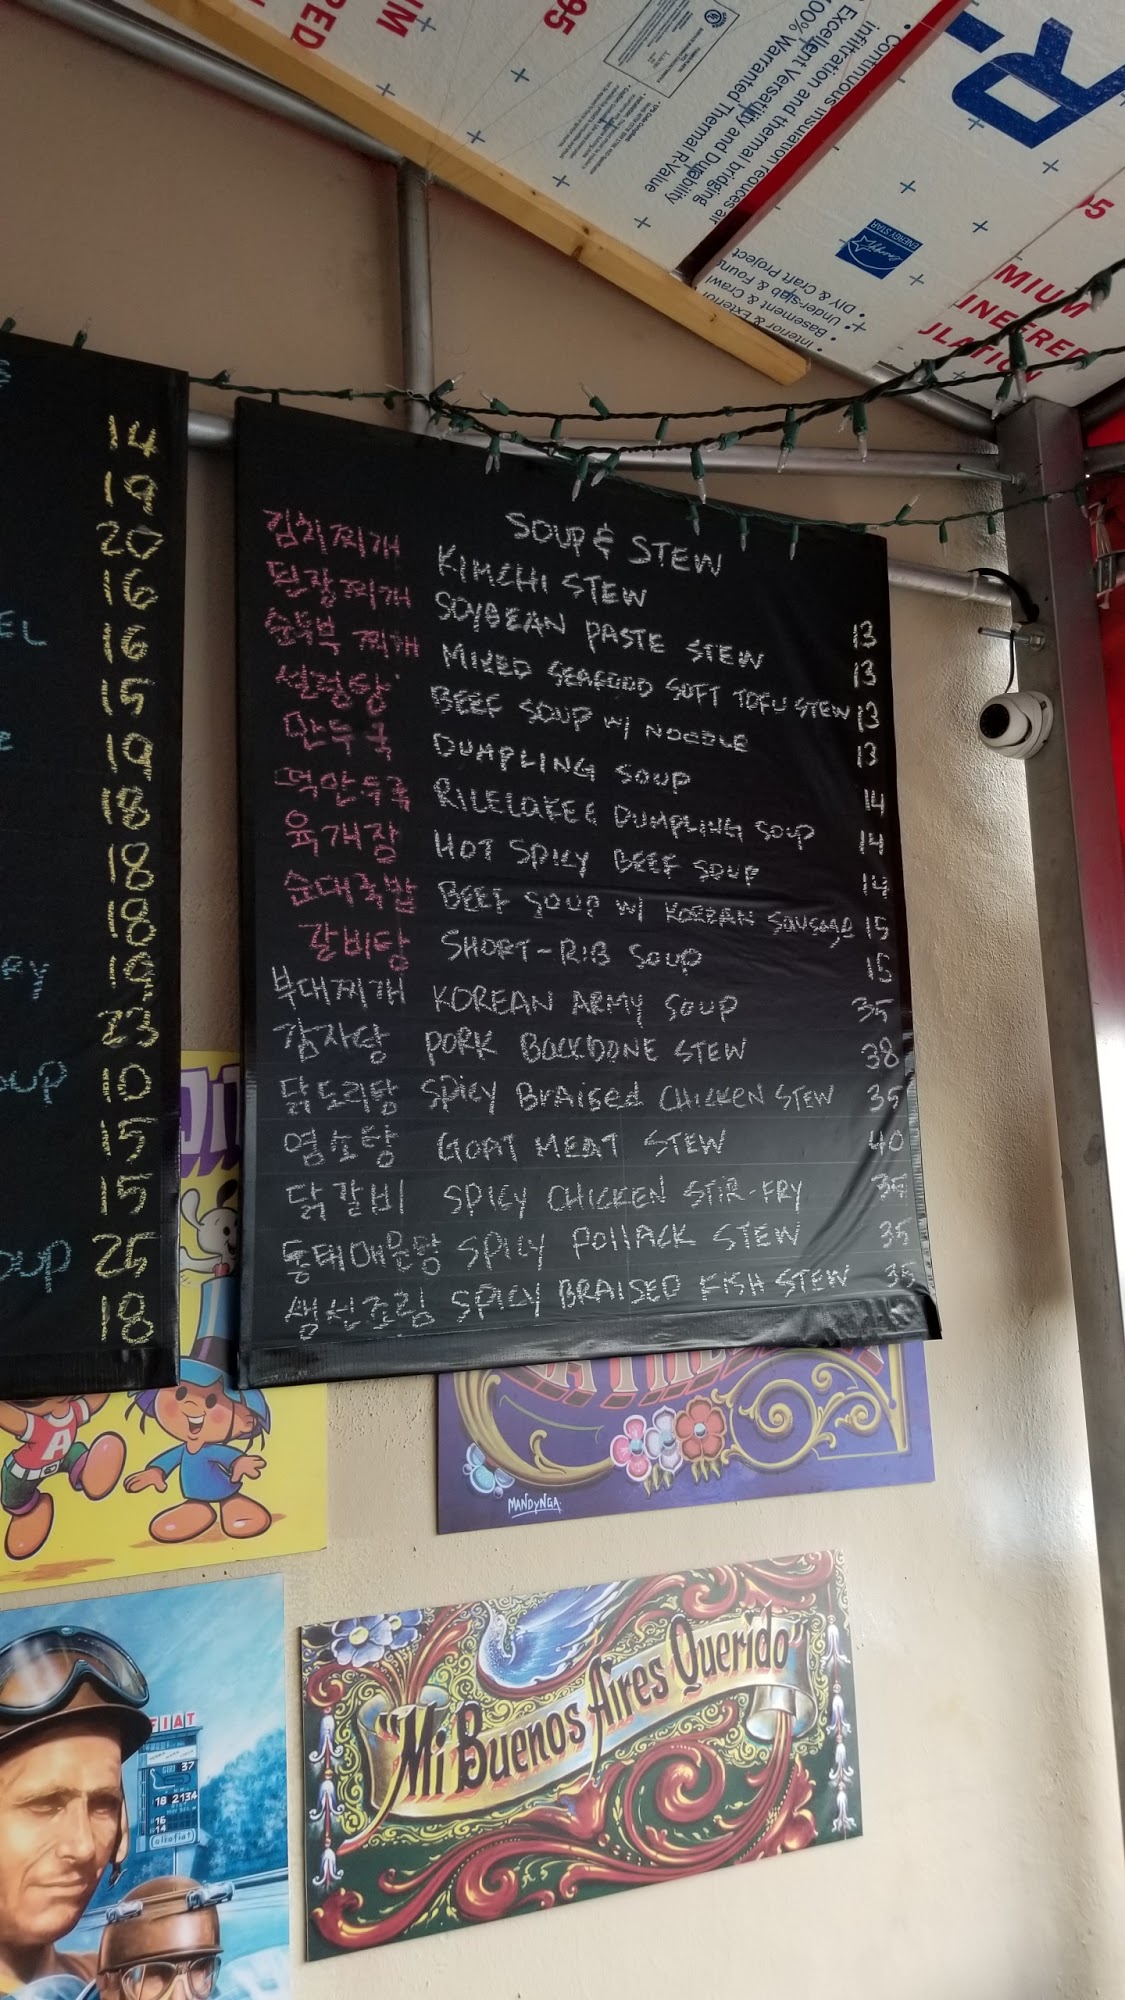 UM
PED
95
• Continuous insulation reduces air
infiltration and thermal bridging
• Excellent Versatility and Durability
100% Warranted Thermal R-Value
R-
ENERGY STAR
• Interior & Exterior
• Basement & Crawl
• Under-slab & Foun
• DIY & Craft Project
5
MIUM
INEERED
ULATION
14
19
20
16
EL 16
15
19
18
18
18
RY 19
23
OUP 10
15
15
OUP 25
18
SOUP & STEW
김치찌개 KIMCHI STEW 13
된장찌개 SOYBEAN PASTE STEW 13
순두부 찌개 MIXED SEAFOOD SOFT TOFU STEW 13
설렁탕 BEEF SOUP W/ NOODLE 13
만두국 DUMPLING SOUP 14
떡만두국 RICECAKE & DUMPLING SOUP 14
육개장 HOT SPICY BEEF SOUP 14
순대국밥 BEEF SOUP W/ KOREAN SAUSAGE 15
갈비탕 SHORT-RIB SOUP 15
부대찌개 KOREAN ARMY SOUP 35
감자탕 PORK BACKBONE STEW 38
닭도리탕 SPICY BRAISED CHICKEN STEW 35
염소탕 GOAT MEAT STEW 40
닭갈비 SPICY CHICKEN STIR-FRY 35
동태매운탕 SPICY POLLACK STEW 35
생선조림 SPICY BRAISED FISH STEW 35
A
MANDYNGA
"Mi Buenos Aires Querido"
FIAT
GIRI 37
18 2134
16
14